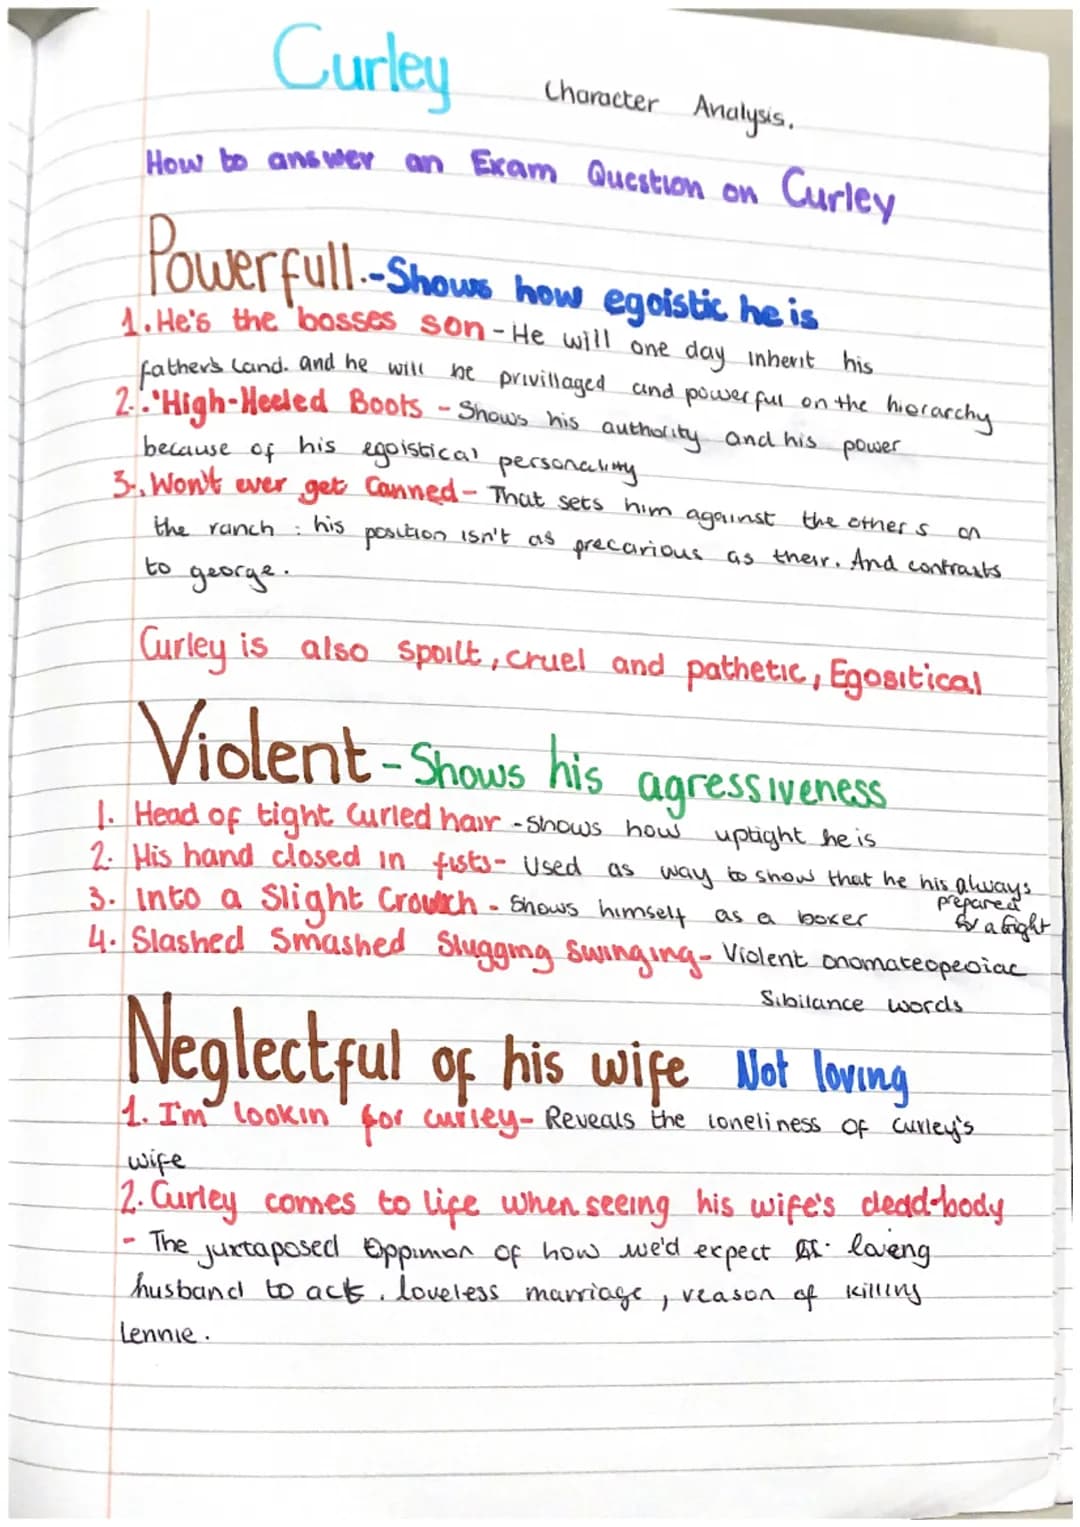 Curley Character Analysis.
How to answer an Exam Question on Curley
Powerfull.-Shows how egoistic he is
1. He's the bosses son - He will one day inherit his
father's land. and he will be privillaged and powerful on the hierarchy
2. "High-Heeled Boots - Shows his authority and his power
because of his egoistical personality
3. Won't ever get Canned - That sets him against the others on
the ranch : his position isn't as precarious as their. And contrasts
to george.
Curley is also spoilt, cruel and pathetic, Egositical
Violent - Shows his agressiveness
1. Head of tight Curled hair - shows how uptight he is
2. His hand closed in fists - Used as way to show that he his always
prepared
for a fight
3. Into a Slight Crouch - Shows himself as a boxer
4. Slashed Smashed Slugging Swinging - Violent onomateopeoiac
Sibilance words
Neglectful of his wife Not loving
1. I'm lookin for curley - Reveals the loneliness of curley's
wife
2. Curley comes to life when seeing his wife's dead-body
- The juxtaposed Oppinion of how we'd expect loveng
husband to act. loveless marriage, reason of killing
Lennie.